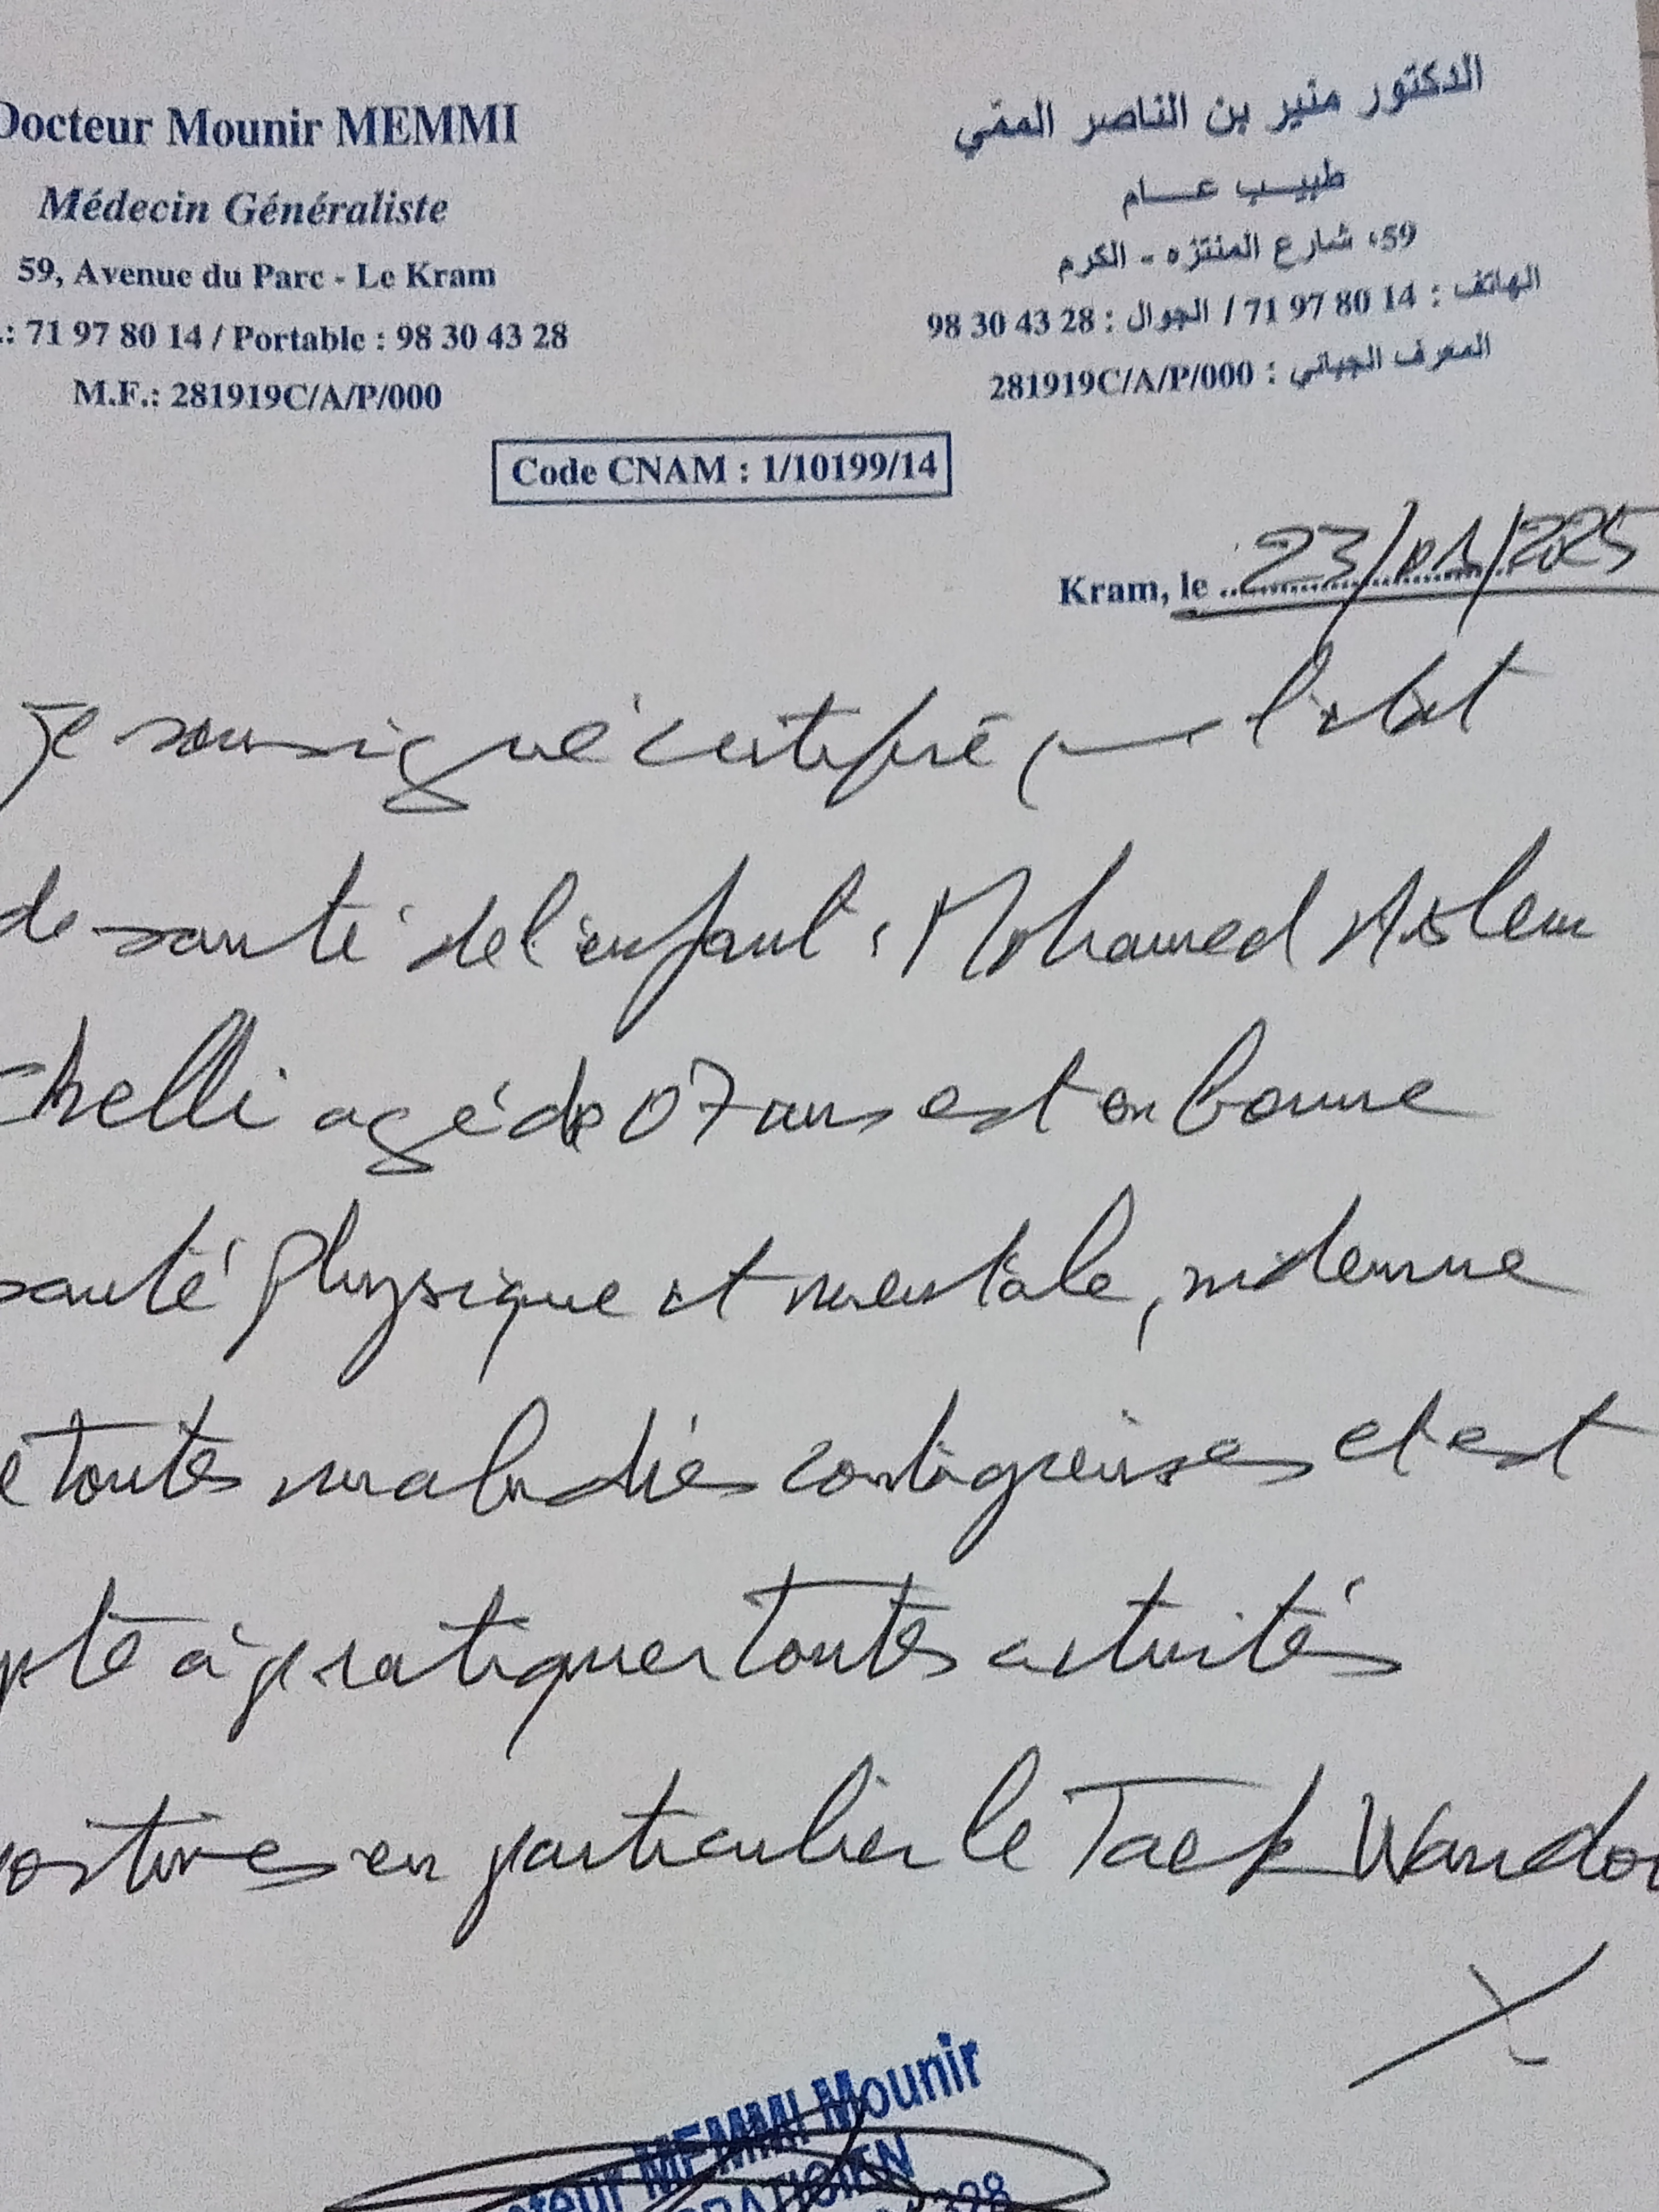 Docteur Mounir MEMMI
Médecin Généraliste
59, Avenue du Parc - Le Kram
.: 71 97 80 14 / Portable : 98 30 43 28
M.F.: 281919C/A/P/000
الدكتور منير بن الناصر الممي
طبيب عام
59، شارع المنتزه - الكرم
الهاتف : 14 80 97 71 / الجوال : 28 43 30 98
المعرف الجبائي : 281919C/A/P/000
Code CNAM : 1/10199/14
Kram, le 23/01/2025
Je soussigné certifié que l'état
de santé de l'enfant : Mohamed Aslem
chelli agé de 07 ans est en bonne
santé physique et mentale, indemne
e toutes maladies contagieuses et est
pte à pratiquer toutes activités
ortives en particulier le Taek Wando
cteur MEMMI Mounir
RATICIEN
328